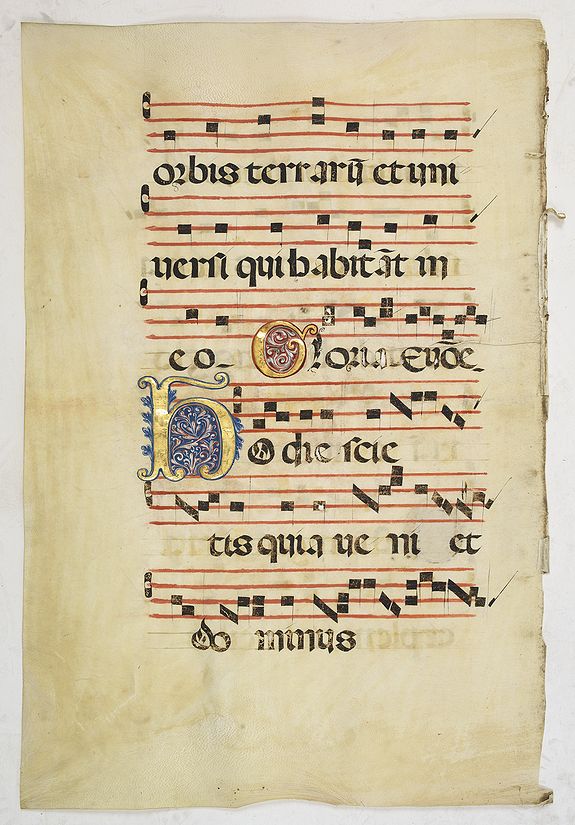 orbis terrarū et uni
uersi qui habitāt in
eo Gloria. Euoūe
Hodie scie
tis quia ue ni et
do minus